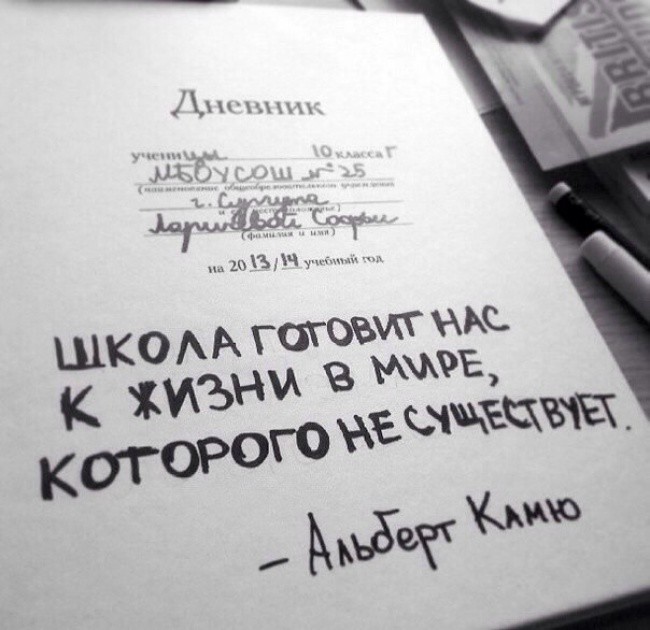 Дневник
ученицы 10 класса Г
МБОУСОШ №25
(наименование общеобразовательного учреждения
г. Сургута
Лариновой Софьи
(фамилия и имя)
на 2013/14 учебный год
ШКОЛА ГОТОВИТ НАС
К ЖИЗНИ В МИРЕ,
КОТОРОГО НЕ СУЩЕСТВУЕТ.
- Альберт Камю